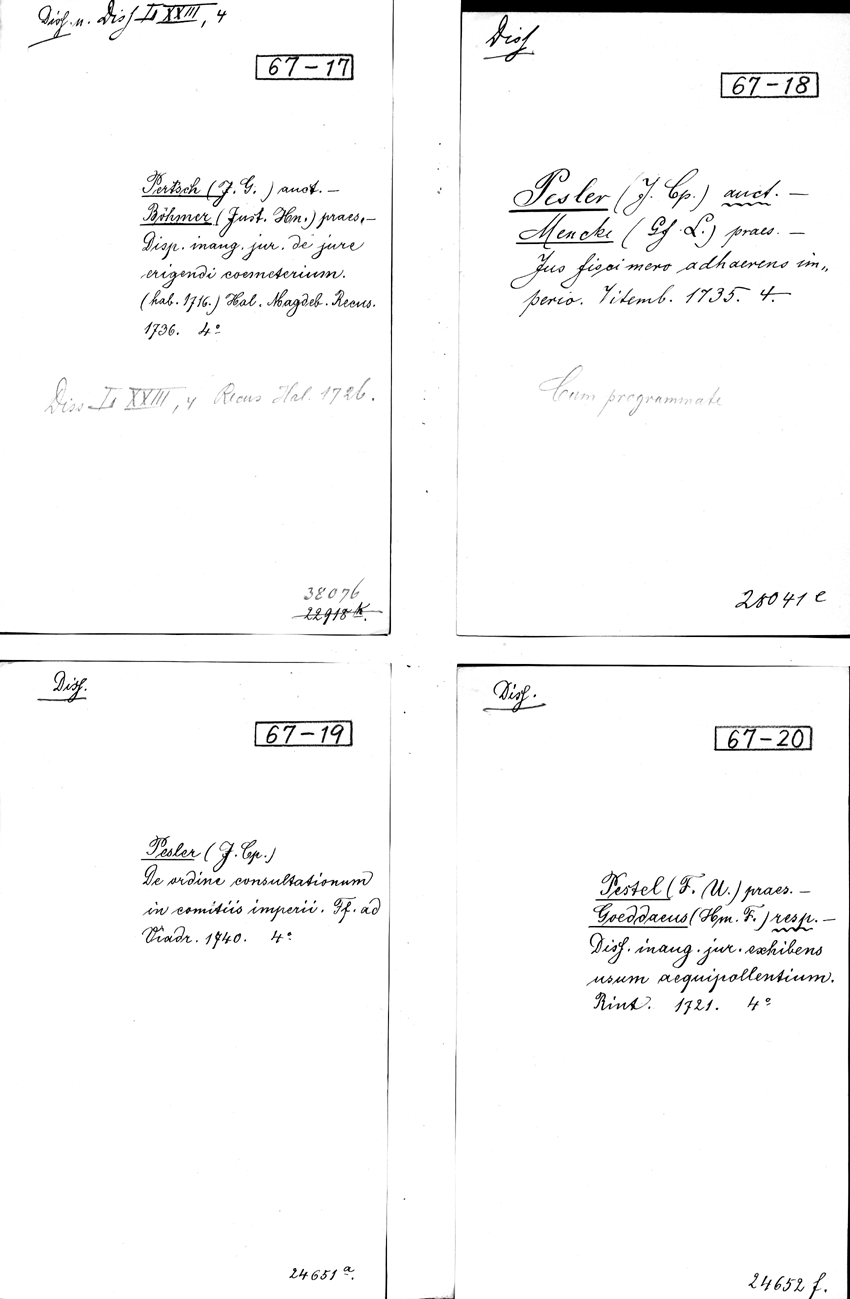 Diss. u. Diss I XXIII, 4
67-17
Pertsch (J. G.) auct. —
Böhmer (Just. Hn.) praes. —
Disp. inaug. jur. de jure
erigendi coemeterium.
(hab. 1716.) Hal. Magdeb. Recus.
1736. 4°
Diss I XXIII, 4 Recus Hal. 1726.
38076
22918 k.
Diss
67-18
Pesler (J. Cp.) auct. —
Mencke (Gf. L.) praes. —
Jus fisci mero adhaerens im„
perio. Vitemb. 1735. 4.
Cum programmate
28041 e
Diss.
67-19
Pesler (J. Cp.)
De ordine consultationum
in comitiis imperii. Tf. ad
Viadr. 1740. 4°
24651 a.
Diss.
67-20
Pestel (F. U.) praes. —
Goeddaeus (Hm. F.) resp. —
Diss. inaug. jur. exhibens
usum aequipollentium.
Rint. 1721. 4°
24652 f.